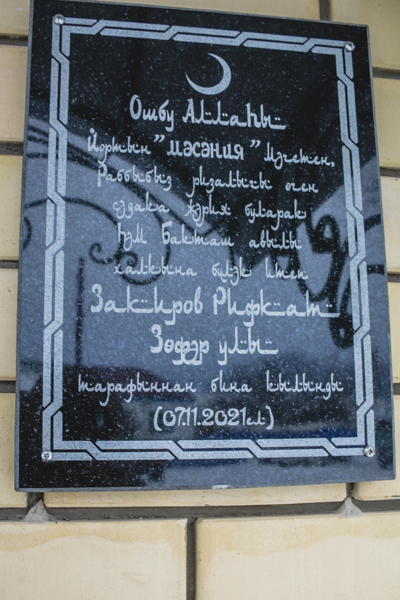 Ошбу Аллаһы
Йортын "мәсәния" мәчетен,
Раббыбыз ризалыгы өчен
сәдака җәрия буларак
һәм Бакташ авылы
халкына бүләк итеп
Закиров Рифкат
Зөфәр улы
тарафыннан бина кылынды
(07.11.2021ел)